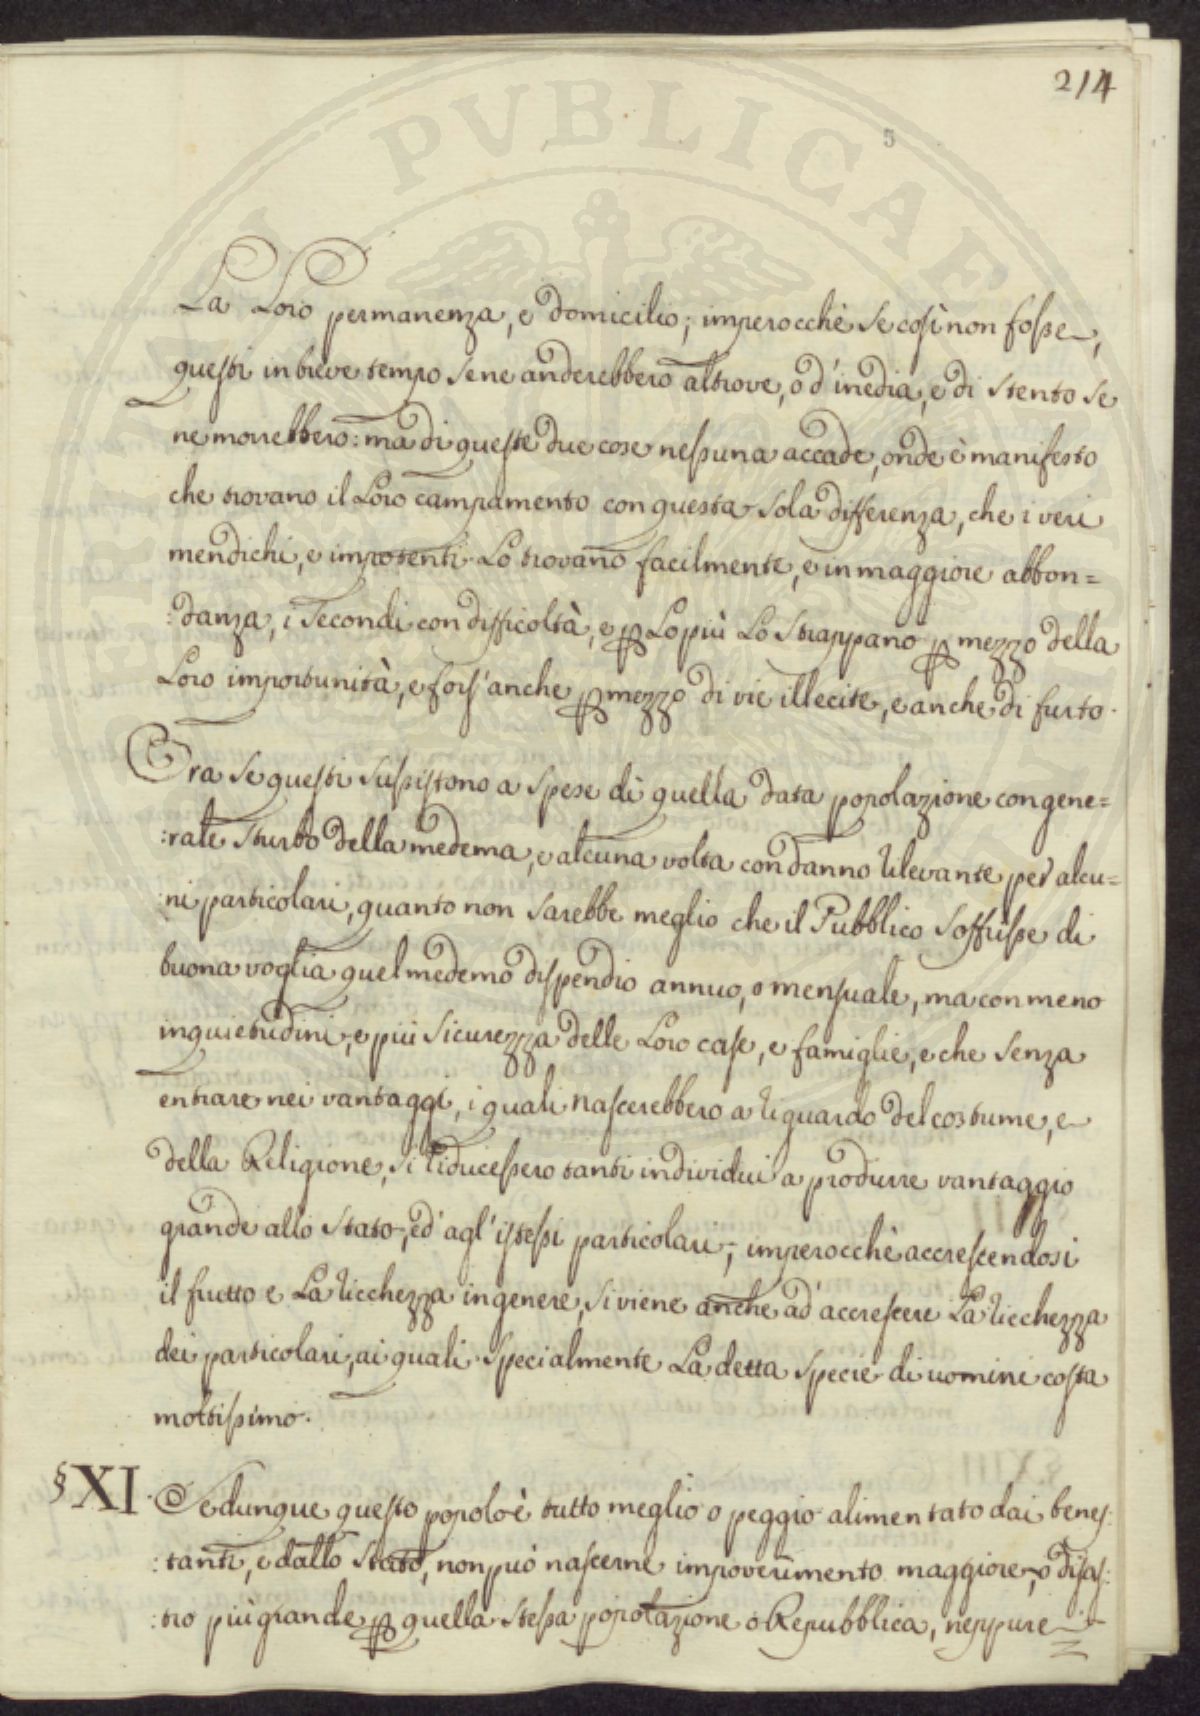 214
5
La Loro permanenza, e domicilio; imperocchè se così non fosse,
questi in breve tempo se ne anderebbero altrove, o d'inedia, e di stento se
ne morrebbero: ma di queste due cose nessuna accade, onde è manifesto
che trovano il Loro campamento con questa sola differenza, che i veri
mendichi, e impotenti Lo trovano facilmente, e in maggiore abbon=
:danza, i secondi con difficoltà, e p Lo più Lo strappano p mezzo della
Loro importunità, e fors'anche p mezzo di vie illecite, e anche di furto.
Ora se questi sussistono a spese di quella data popolazione con gene=
:rale sturbo della medema, e alcuna volta con danno rilevante per alcu=
:ni particolari, quanto non sarebbe meglio che il Pubblico soffrisse di
buona voglia quel medemo dispendio annuo, o mensuale, ma con meno
inquietudini, e più sicurezza delle Loro case, e famiglie, e che senza
entrare nei vantaggi, i quali nascerebbero a riguardo del costume, e
della Religione, si riducessero tanti individui a produrre vantaggio
grande allo stato, ed agl'istessi particolari; imperocchè accrescendosi
il frutto e La ricchezza in genere, si viene anche ad accrescere La ricchezza
dei particolari, ai quali specialmente La detta specie di uomini costa
moltissimo.
§XI. Se dunque questo popolo è tutto meglio o peggio alimentato dai benes:
:tanti, e dallo stato, non può nascerne impoverimento maggiore, o disas:
:tro più grande p quella stessa popolazione o Repubblica, neppure
PUBLICAE